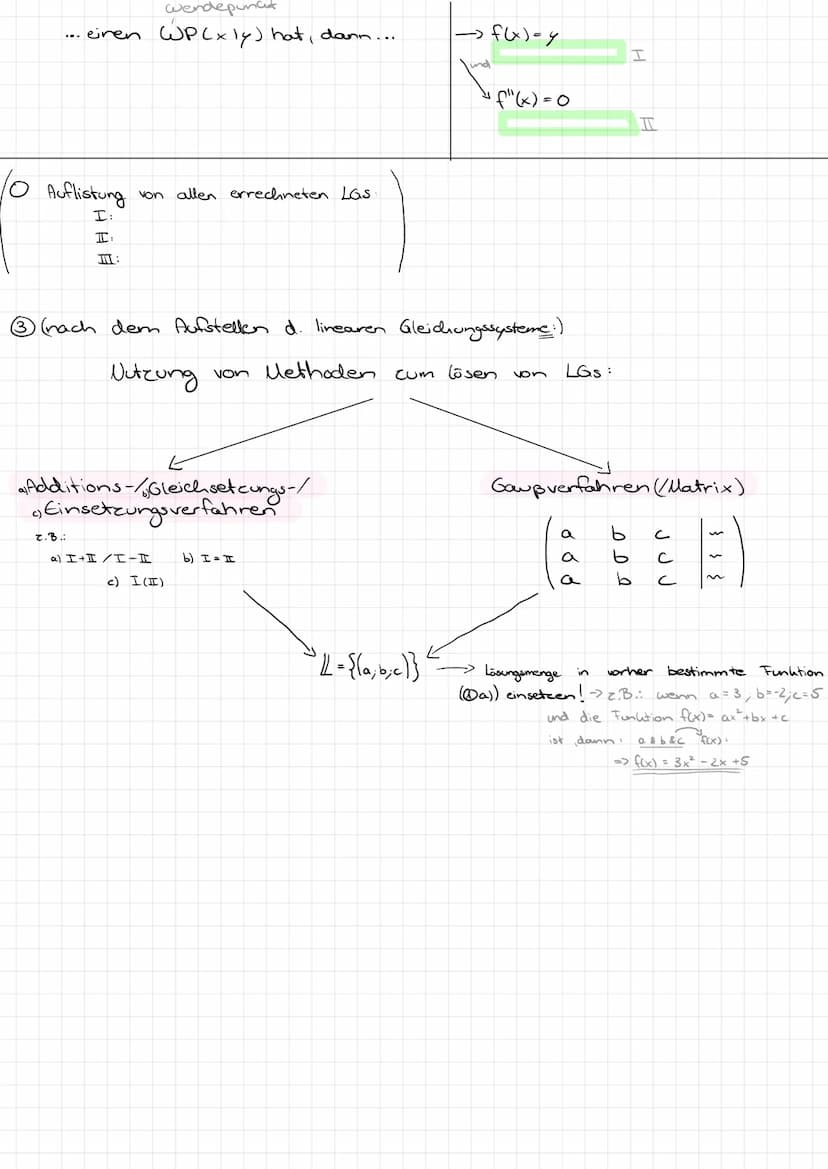 Wendepunkt
... einen WP(x|y) hat, dann...
→ f(x) = y
I
und
f''(x) = 0
II
0 Auflistung von allen errechneten LGS:
I:
II:
III:
③ (nach dem Aufstellen d. linearen Gleichungssysteme:)
Nutzung von Methoden zum lösen von LGS:
a) Additions-/b) Gleichsetzungs-/
c) Einsetzungsverfahren
z.B.:
a) I+II / I-II b) I=II
c) I(II)
Gaußverfahren (/Matrix)
a b c | ~
a b c | ~
a b c | ~
𝕃 = {(a;b;c)}
→ Lösungsmenge in vorher bestimmte Funktion
(① a)) einsetzen! → z.B.: wenn a=3, b=-2; c=5
und die Funktion f(x) = ax² + bx + c
ist, dann: a & b & c f(x):
=> f(x) = 3x² - 2x + 5